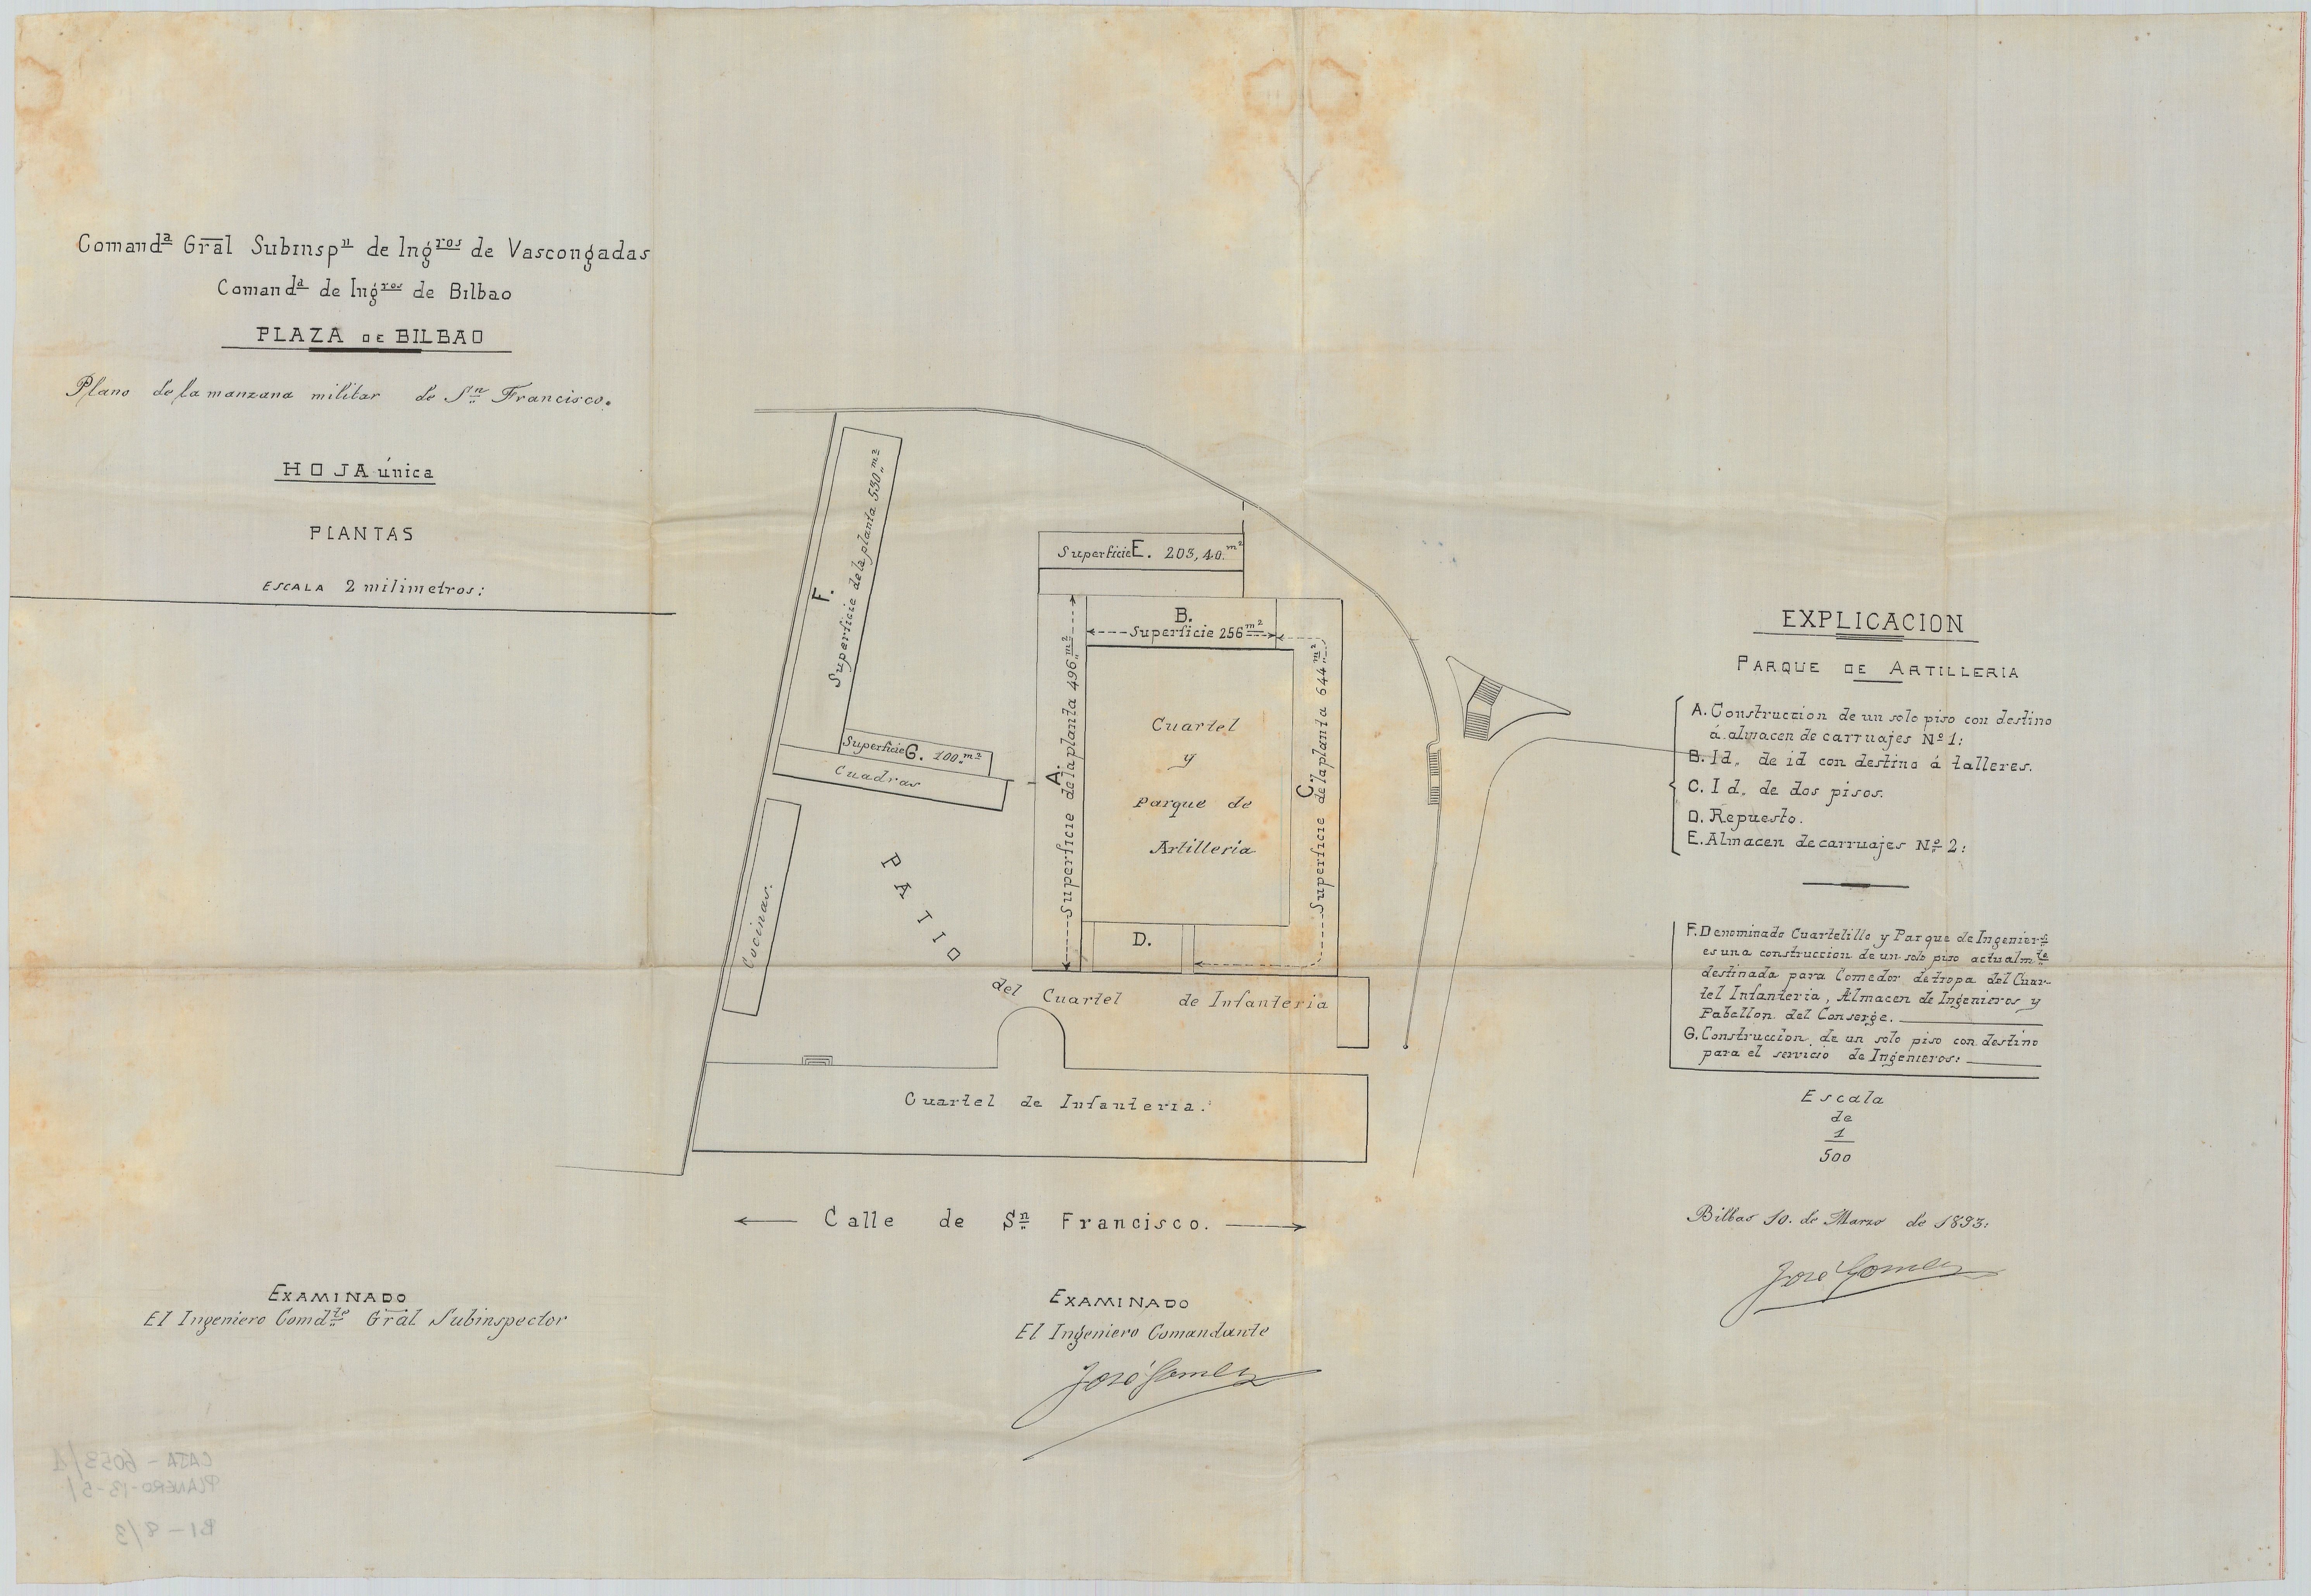 Comandª Gral Subinspⁿ de Ingʳᵒˢ de Vascongadas
Comandª de Ingʳᵒˢ de Bilbao
PLAZA DE BILBAO
Plano de la manzana militar de Sⁿ Francisco.
HOJA única
PLANTAS
ESCALA 2 milimetros:
F.
Superficie de la planta 530 m²
Superficie G. 100. m²
Cuadras
Cocinas.
PATIO
del Cuartel de Infanteria
Superficie E. 203,40. m²
B.
Superficie 256 m²
A.
Superficie de la planta 496 m²
C.
Superficie de la planta 644 m²
Cuartel
y
Parque de
Artilleria
D.
Cuartel de Infanteria.
Calle de Sⁿ Francisco.
EXPLICACION
PARQUE DE ARTILLERIA
A. Construccion de un solo piso con destino
á almacen de carruajes Nº 1:
B. Id. de id con destino á talleres.
C. Id. de dos pisos.
D. Repuesto.
E. Almacen de carruajes Nº 2:
F. Denominado Cuartelillo y Parque de Ingenierˢ
es una construccion de un solo piso actualmᵗᵉ
destinada para Comedor de tropa del Cuar-
tel Infanteria, Almacen de Ingenieros y
Pabellon del Conserge.
G. Construccion de un solo piso con destino
para el servicio de Ingenieros:
Escala
de
1
500
Bilbao 10. de Marzo de 1893:
José Gomez
EXAMINADO
El Ingeniero Comdᵗᵉ Gral Subinspector
EXAMINADO
El Ingeniero Comandante
José Gomez
CAJA - 6053/1
PLANERO-13-5/
BI-8/3